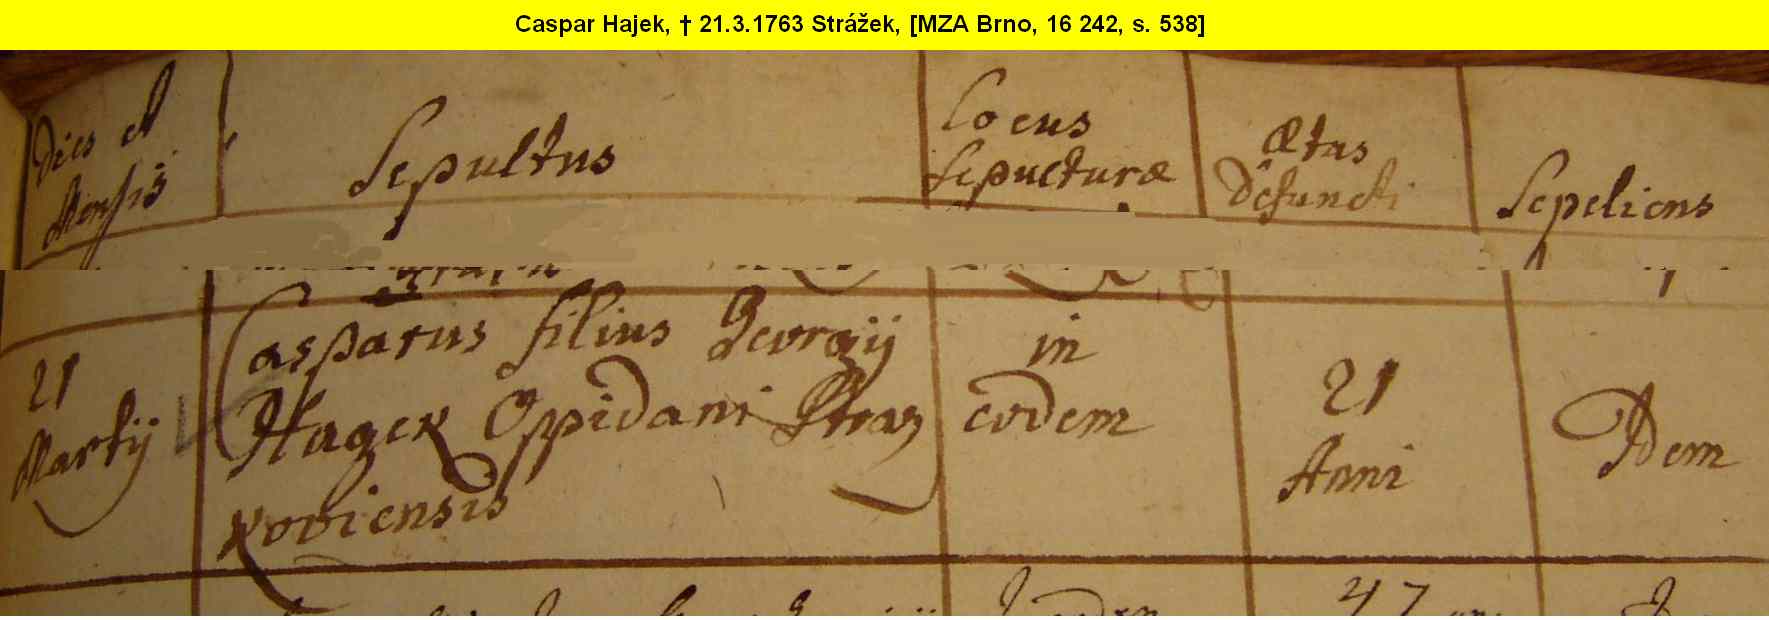 Caspar Hajek, † 21.3.1763 Strážek, [MZA Brno, 16 242, s. 538]
Dies et
Mensis
Sepultus
Locus
Sepulturæ
Ætas
Defuncti
Sepeliens
21
Martij
Casparus filius Georgij
Hagek Oppidani Straz
koviensis
in
eodem
21
Anni
Idem
47